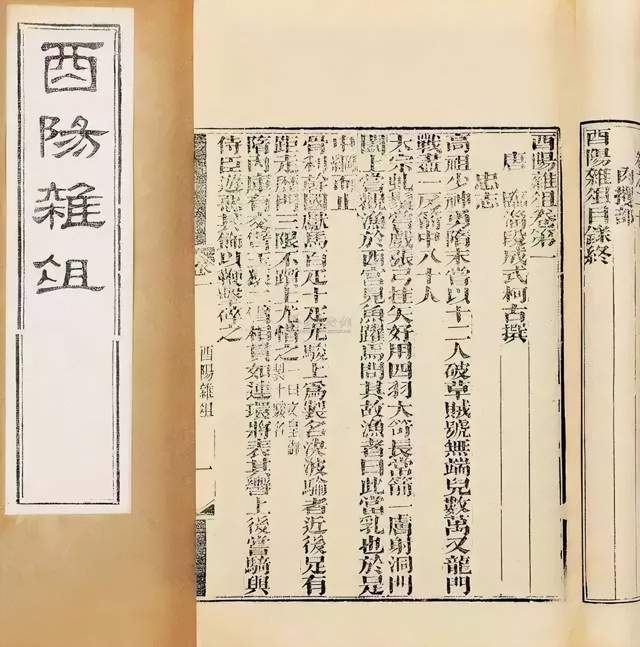 酉陽雜俎
肉攫部
酉陽雜俎目錄終
酉陽雜俎卷第一
唐 臨淄段成式柯古撰
忠志
高祖少神勇隋末嘗以十二人破草賊號無端兒數萬又龍門
戰盡一房箭中八十人
太宗虬鬚嘗戲張弓挂矢好用四羽大笴長常箭一膚射洞門
闔上嘗觀漁於西宮見魚躍焉問其故漁者曰此當乳也於是
中網而止
骨利幹國獻馬百疋十疋尤駿上為製名決波騟者近後足有
距走歷門三限不躓上尤惜之
隋內庫有交臂玉猿二臂相貫如連環將表其轡上後嘗騎與
侍臣遊惡其飾以鞭擊碎之
酉陽雜俎
一